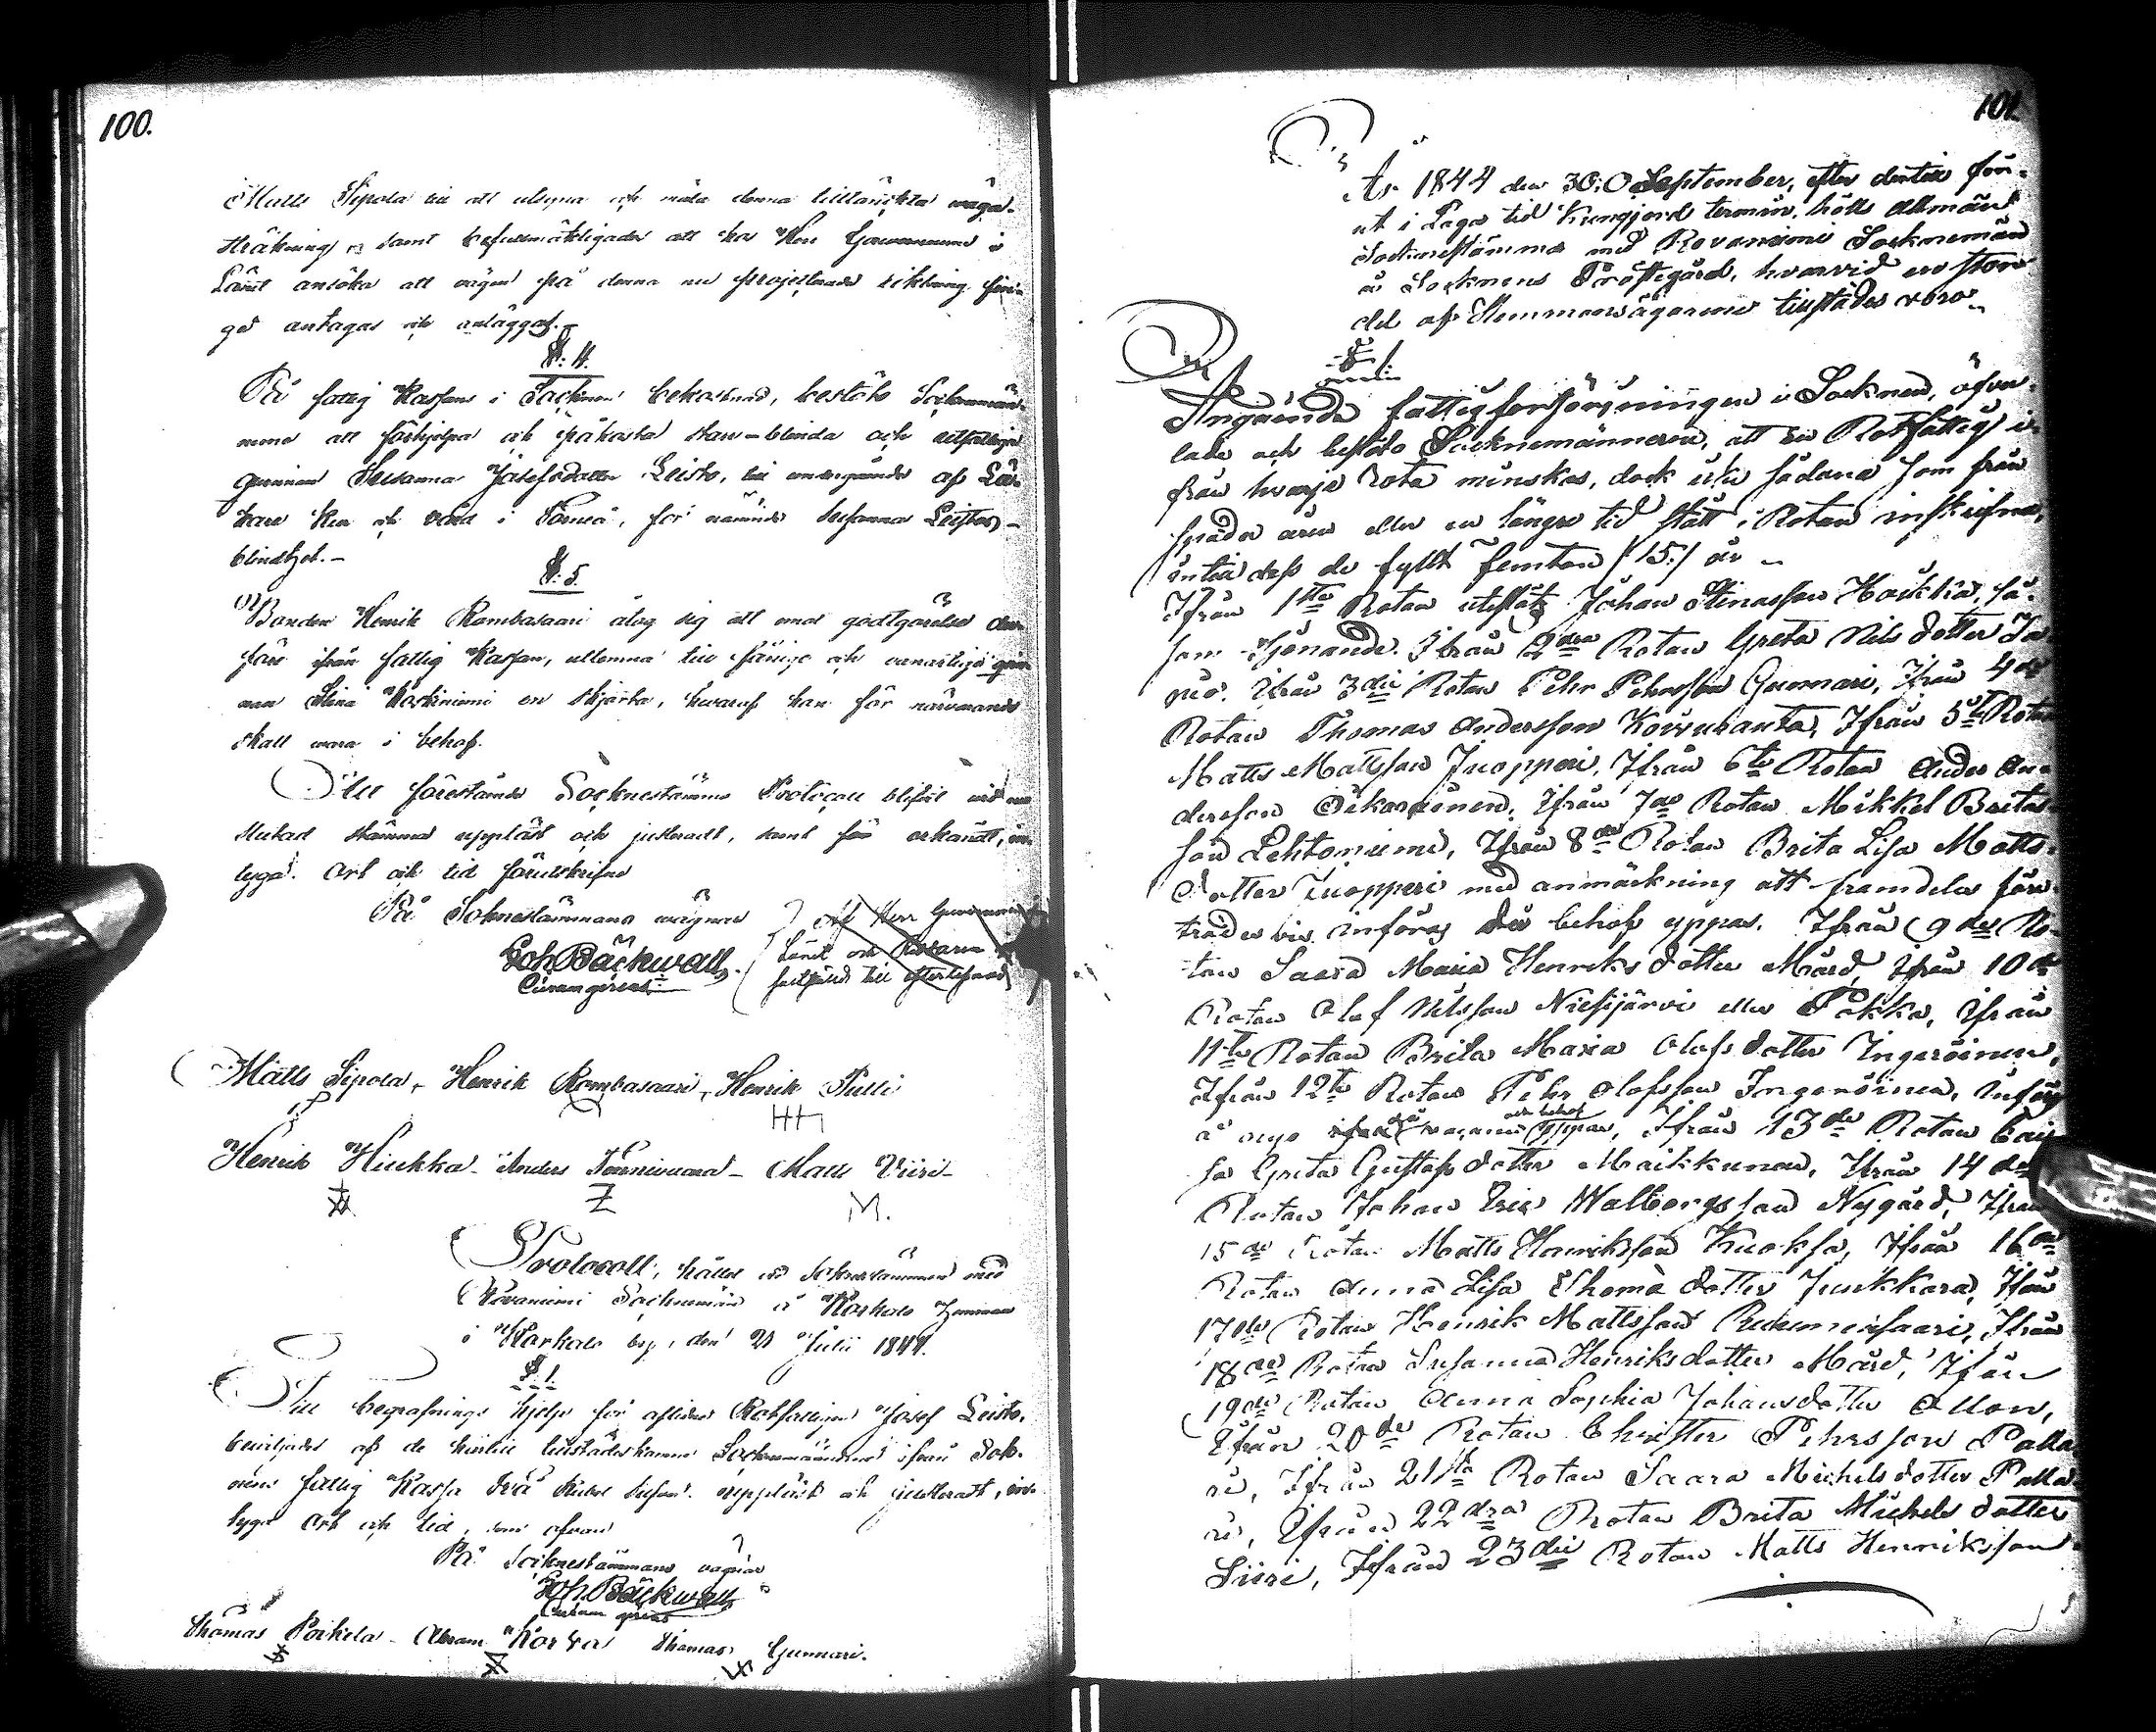 100.
Matts Sipola till att utsyna och mäta denna tilltänkta väga-
sträkning, samt befullmäktigades att hos Herr Gouverneuren i
Länet ansöka att vägen på denna nu projecterade riktning finge
antagas och anläggas.
§: 4.
På fattig Kassans i Socknen bekostnad, beslöto Socknemännerne
att förhjelpa och påkosta starr-blinda och utfattiga
quinnan Susanna Josefsdotter Leisto, till undergående af Läkare
Kur och vård i Torneå, för nämnde Susanna Leistos
blindhet.-
§: 5.
Bonden Henrik Rombasaari åtog sig att emot godtgörelse derföre
ifrån fattig Kassan, utlemna till sånige och vanartiga quinnan
Stina Koskiniemi en skjorta, hvaraf han för närvarande
skall vara i behof.
Att förestående Socknestämmo Protocoll blifvit vid
slutad stämma uppläst och justeradt, samt för erkändt, intygar.
Ort och tid förutskrifne
På Soknestämmans vägnar
Joh Bäckwall
Curam gerens.
Af Herr Gouverneuren
Länet och
till efterlefnad
Matts Sipola, Henrik Rombasaari, Henrik Pulli
HH
Henrik Hiukka - Anders Tennivaara - Matts Viiri -
Z M.
Protocoll, hållet vid Soknestämman med
Rovaniemi Socknemän å Korkalo hemman
i Korkalo by, den 21 Julii 1844.
§ 1.
Till begrafnings hjelp för aflidne Rotfattigen Josef Leisto,
beviljades af de hittills tillstädeskomne Socknemännerne ifrån Soknens
fattig Kassa två Rubel Silfver. uppläst och justeradt, intygar
Ort och tid, som ofvan
På Socknestämmans vägnar
Joh. Bäckwall
Curam gerens
Thomas Poikela - Abram Korva Thomas Gunnari.
101.
År 1844 den 30:de September, efter dertill förut
i Laga tid Kungjord termin, hölls allmän
Socknestämma med Rovaniemi Socknemän
å Socknens Prostegård, hvarvid en stor
del af Hemmansägarene tillstädes voro
§ 1.
Angående fattigförsörjningen i Socknen, öfverlade
och beslöto Socknemännerne, att en Rotfattig
från hvarje Rota minskas, dock icke sådana som från
späda åren eller en längre tid stått i Rotan inskrifne,
intill dess de fyllt femton /15:/ år
Ifrån 1sta Rotan uteslöts Johan Stinasson Hoikka, såsom
tjenande. Ifrån 2dra Rotan Greta Nils dotter
Ifrån 3die Rotan Pehr Pehrsson Gunnari, Ifrån 4de
Rotan Thomas Andersson Koivuranta, Ifrån 5te Rotan
Matts Mattsson Juopperi, Ifrån 6te Rotan Anders Andersson
Oikarainen, Ifrån 7de Rotan Mikkel Britason
Lehtoniemi, Ifrån 8de Rotan Brita Lisa Mattsdotter
Juopperi med anmärkning att framdeles företrädesvis
införas då behof yppas. Ifrån 9de Rotan
Saara Maria Henriks dotter Mård, Ifrån 10de
Rotan Olof Nilsson Niesijärvi eller Pokka, Ifrån
11te Rotan Brita Maria Olofs dotter Ingeröinen,
Ifrån 12te Rotan Pehr Olofsson Ingeröinen, införes
å nyo då om behof yppas, Ifrån 13de Rotan Caisa
Greta Gustafs dotter Maikkunen, Ifrån 14de
Rotan Johan Eric Walborgsson Nygård, Ifrån
15de Rotan Matts Henriksson Kuoksa, Ifrån 16de
Rotan Anna Lisa Thoma dotter Junkkara, Ifrån
17de Rotan Henrik Mattsson Ruikmansaari, Ifrån
18de Rotan Susanna Henriksdotter Mård, Ifrån
19de Rotan Anna Sophia Johansdotter Ollon,
Ifrån 20de Rotan Christer Pehrsson Pallari,
Ifrån 21sta Rotan Saara Michelsdotter Pallari,
Ifrån 22dra Rotan Brita Michels dotter
Siiri, Ifrån 23die Rotan Matts Henriksson